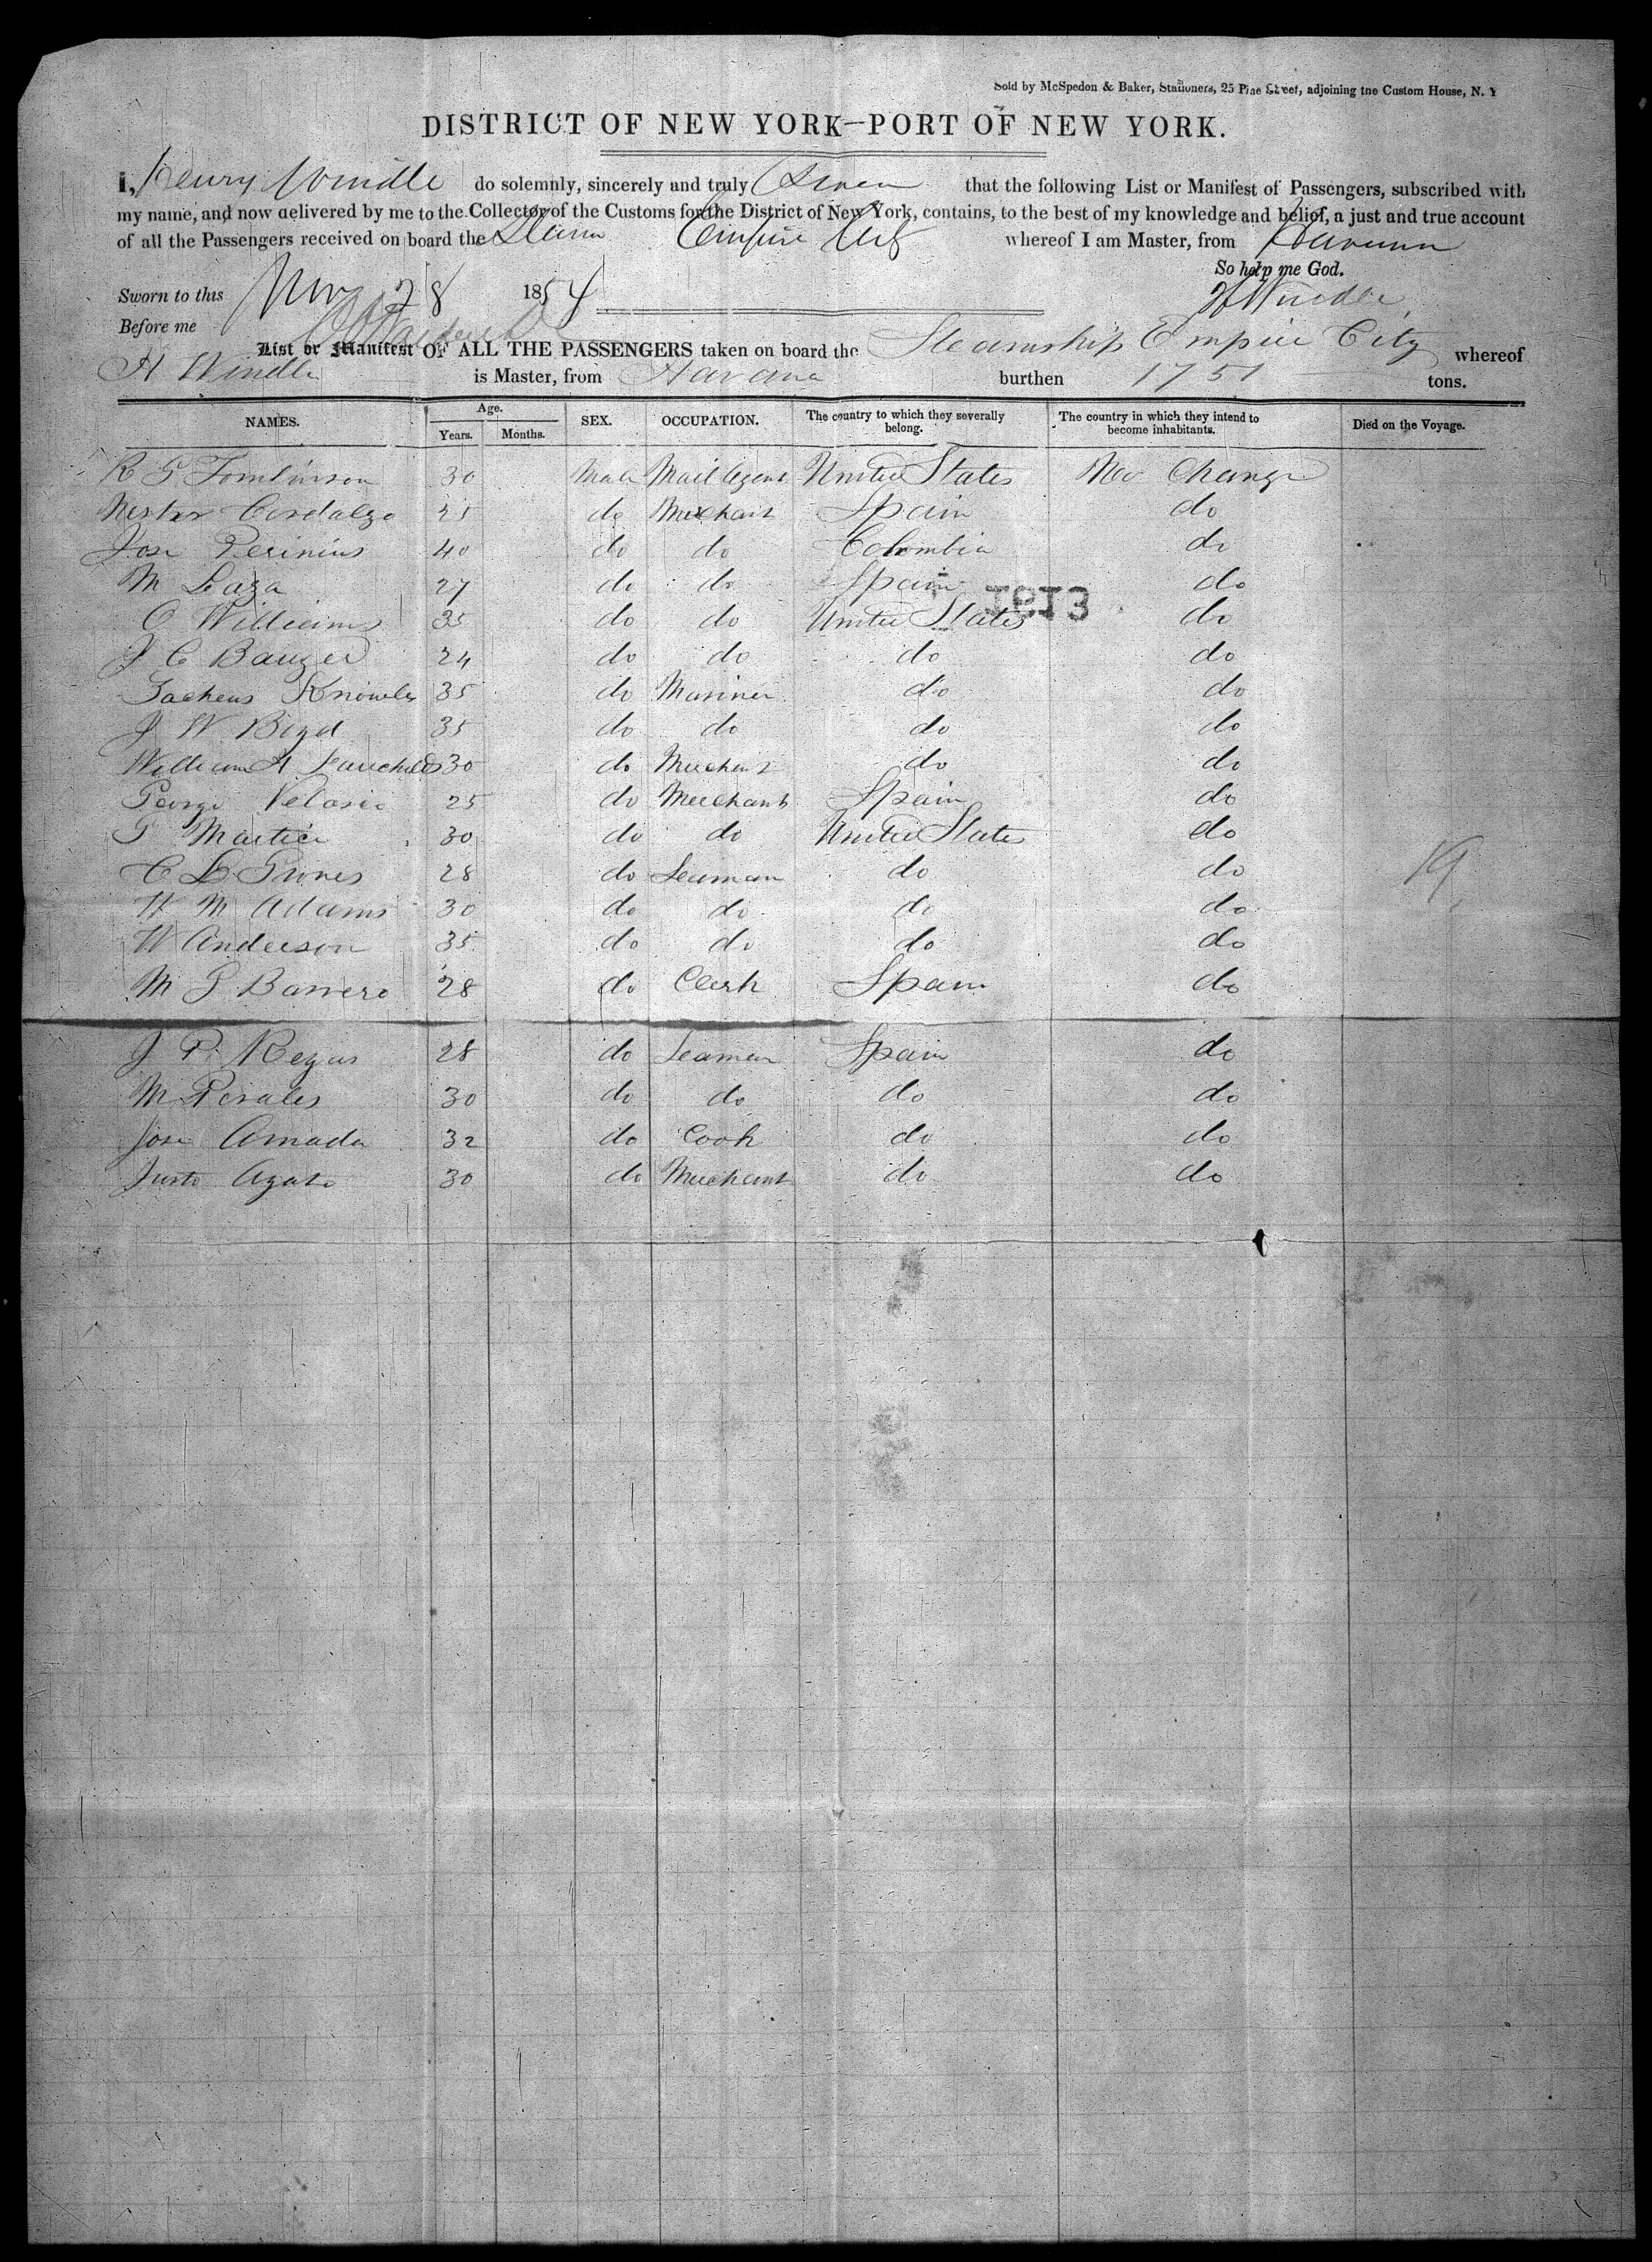 Sold by McSpedon & Baker, Stationers, 25 Pine Street, adjoining the Custom House, N. Y
DISTRICT OF NEW YORK—PORT OF NEW YORK.
I, Henry Windle do solemnly, sincerely and truly Swear that the following List or Manifest of Passengers, subscribed with
my name, and now delivered by me to the Collector of the Customs for the District of New York, contains, to the best of my knowledge and belief, a just and true account
of all the Passengers received on board the Steam Empire City whereof I am Master, from Havana
So help me God.
Sworn to this Nov 28 1854 H Windle
Before me
List or Manifest OF ALL THE PASSENGERS taken on board the Steamship Empire City whereof
H Windle is Master, from Havana burthen 1751 tons.
NAMES. Age. Years. Months. SEX. OCCUPATION. The country to which they severally belong. The country in which they intend to become inhabitants. Died on the Voyage.
R G Tomlinson 30 Male Mail Agent United States No Change
Nestor 25 do Merchant Spain do
Jose 40 do do Colombia do
M Laza 27 do do Spain do
1613
C Williams 35 do do United States do
J C 24 do do do do
Zacheus Knowles 35 do Mariner do do
J W Boyd 35 do do do do
William H Fauchilds 30 do Merchant do do
George Velasco 25 do Merchant Spain do
30 do do United States do
C L Grines 28 do Seaman do do 19
H M Adams 30 do do do do
W Anderson 35 do do do do
M G Barrero 28 do Clerk Spain do
J P Regus 28 do Seaman Spain do
M Perales 30 do do do do
Jose Amada 32 do Cook do do
Justo Agato 30 do Merchant do do